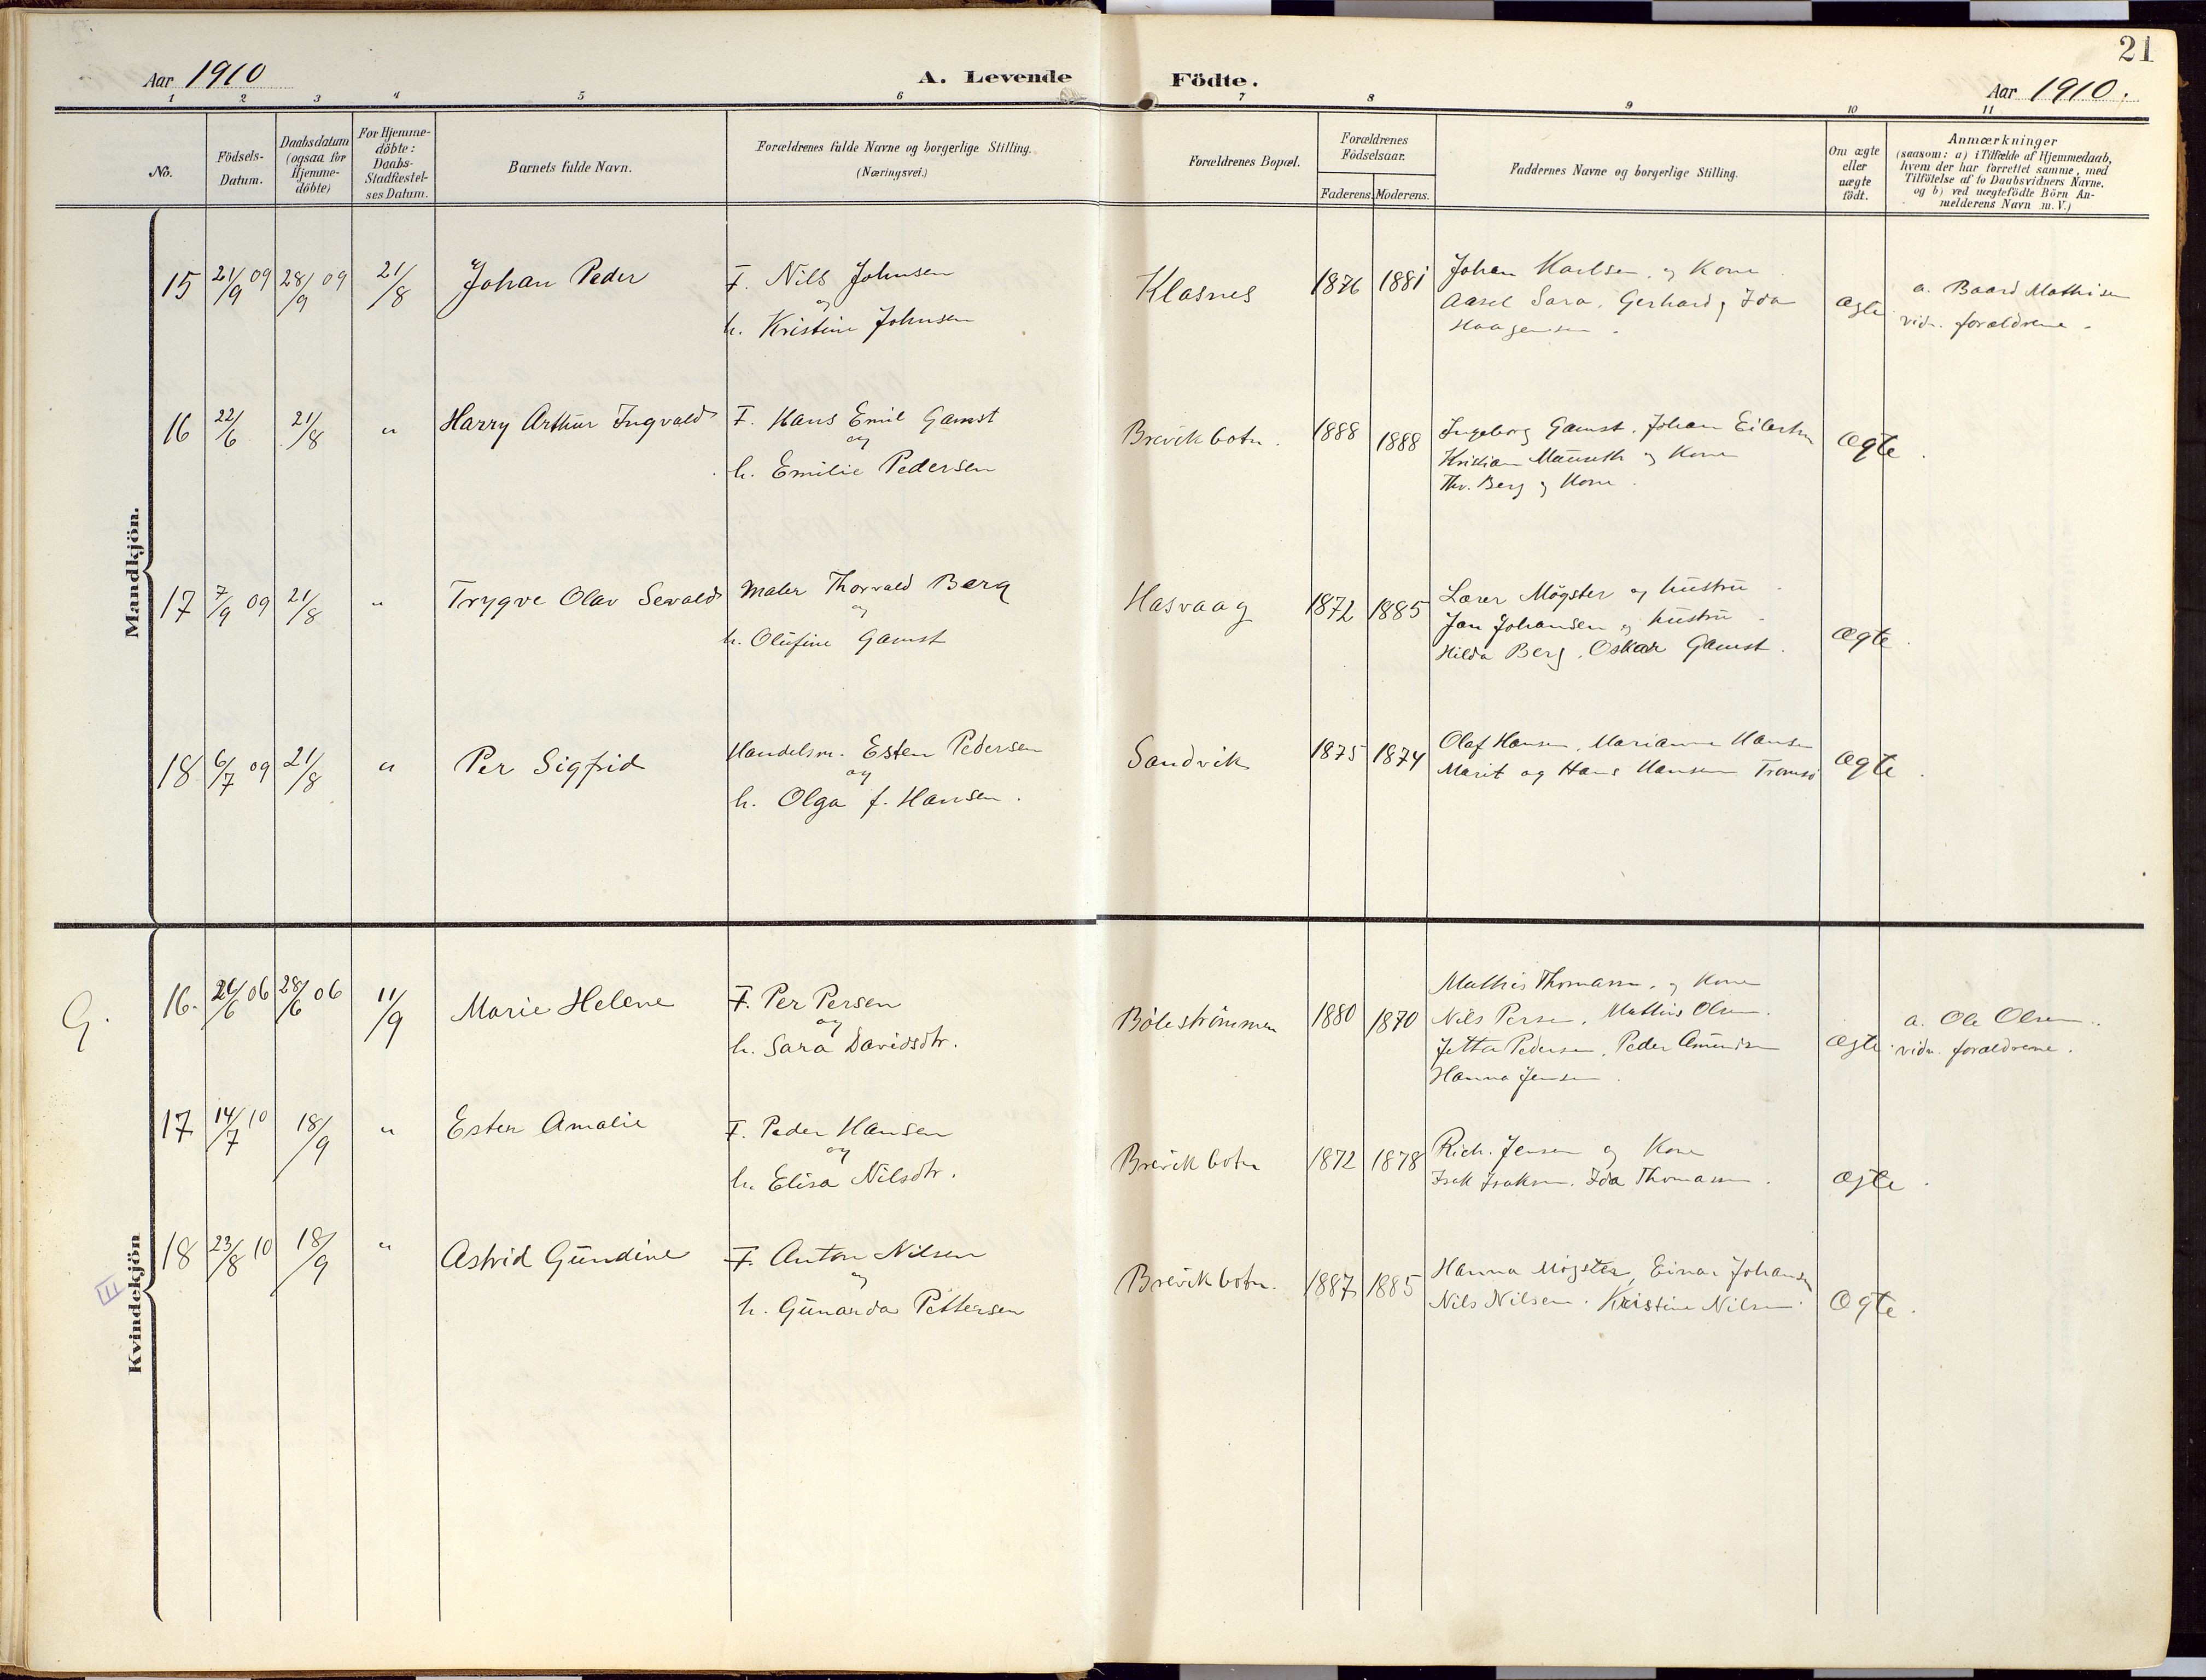 21
Aar 1910
A. Levende Födte.
Aar 1910.
1 2 3 4 5 6 7 8 9 10 11
No.
Födsels-
Datum.
Daabsdatum
(ogsaa for
Hjemme-
döbte)
For Hjemme-
döbte:
Daabs-
Stadfæstel-
ses Datum.
Barnets fulde Navn.
Forældrenes fulde Navne og borgerlige Stilling.
(Næringsvei.)
Forældrenes Bopæl.
Forældrenes
Födselsaar.
Faderens. Moderens.
Faddernes Navne og borgerlige Stilling.
Om ægte
eller
uægte
födt.
Anmærkninger
(saasom: a) i Tilfælde af Hjemmedaab,
hvem der har forrettet samme, med
Tilföielse af to Daabsvidners Navne.
og b) ved uægtefödte Börn An-
melderens Navn m. V.)
Mandkjön.
15 21/9 09 28/9 09 21/8 Johan Peder
F. Nils Johnsen
og
h. Kristine Johnsen
Klasnes 1876 1881
Johan Karlsen og Kone
Aasel Sara, Gerhard og Ida
Haagensen.
ægte
a. Baard Mathisen
vidn. forældrene.
16 22/6 21/8 " Harry Arthur Ingvald
F. Hans Emil Gamst
og
h. Emilie Pedersen
Brevikbotn. 1888 1888
Ingeborg Gamst, Johan
Kristian og Kone
Thv. Berg og Kone.
ægte.
17 7/9 09 21/8 " Trygve Olav Sevald
Maler Thorvald Berg
og
h. Olufine Gamst
Hasvaag 1872 1885
Lærer Mögster og hustru.
Jan Johansen og hustru.
Hilda Berg, Oskar Gamst.
ægte.
18 6/7 09 21/8 " Per Sigfrid
Handelsm. Esten Pedersen
og
h. Olga f. Hansen.
Sandvik 1875 1874
Olaf Hansen, Marianne Hansen
Marit og Hans Hansen Tromsö
ægte.
Kvindekjön
G.
III
16. 26/6 06 28/6 06 11/9 Marie Helene
F. Per Persen
og
h. Sara Davidsdtr.
Bölestrømmen 1880 1870
Mathis Thomassen og Kone
Nils Persen, Mathis Olsen.
Jetta Pedersen, Peder Amundsen
Hanna Jensen.
ægte.
a. Ole Olsen.
vidn. forældrene.
17 14/7 10 18/9 " Ester Amalie
F. Peder Hansen
og
h. Elisa Nilsdtr.
Brevikbotn 1872 1878
Rich. Jensen og Kone
Isak Isaksen, Ida Thomassen.
ægte.
18 23/8 10 18/9 " Astrid Gundine
F. Anton Nilsen
og
h. Gunarda Pettersen
Brevikbotn. 1887 1885
Hanna Mögster, Einar Johansen
Nils Nilsen. Kristine Nilsen.
Ægte.